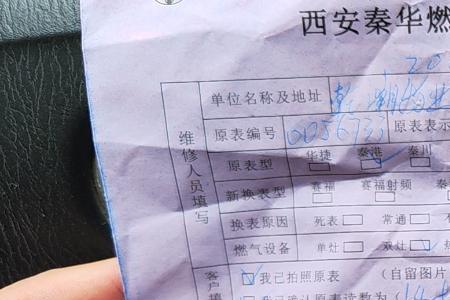 西安秦华燃
单位名称及地址
维修人员填写
原表编号 0056733 原表表示
原表型 华捷 秦港 秦川
新换表型 赛福 赛福射频 秦
换表原因 死表 常通
燃气设备 单灶 双灶
客户 我已拍照原表 (自留图片
我已确认原表读数为